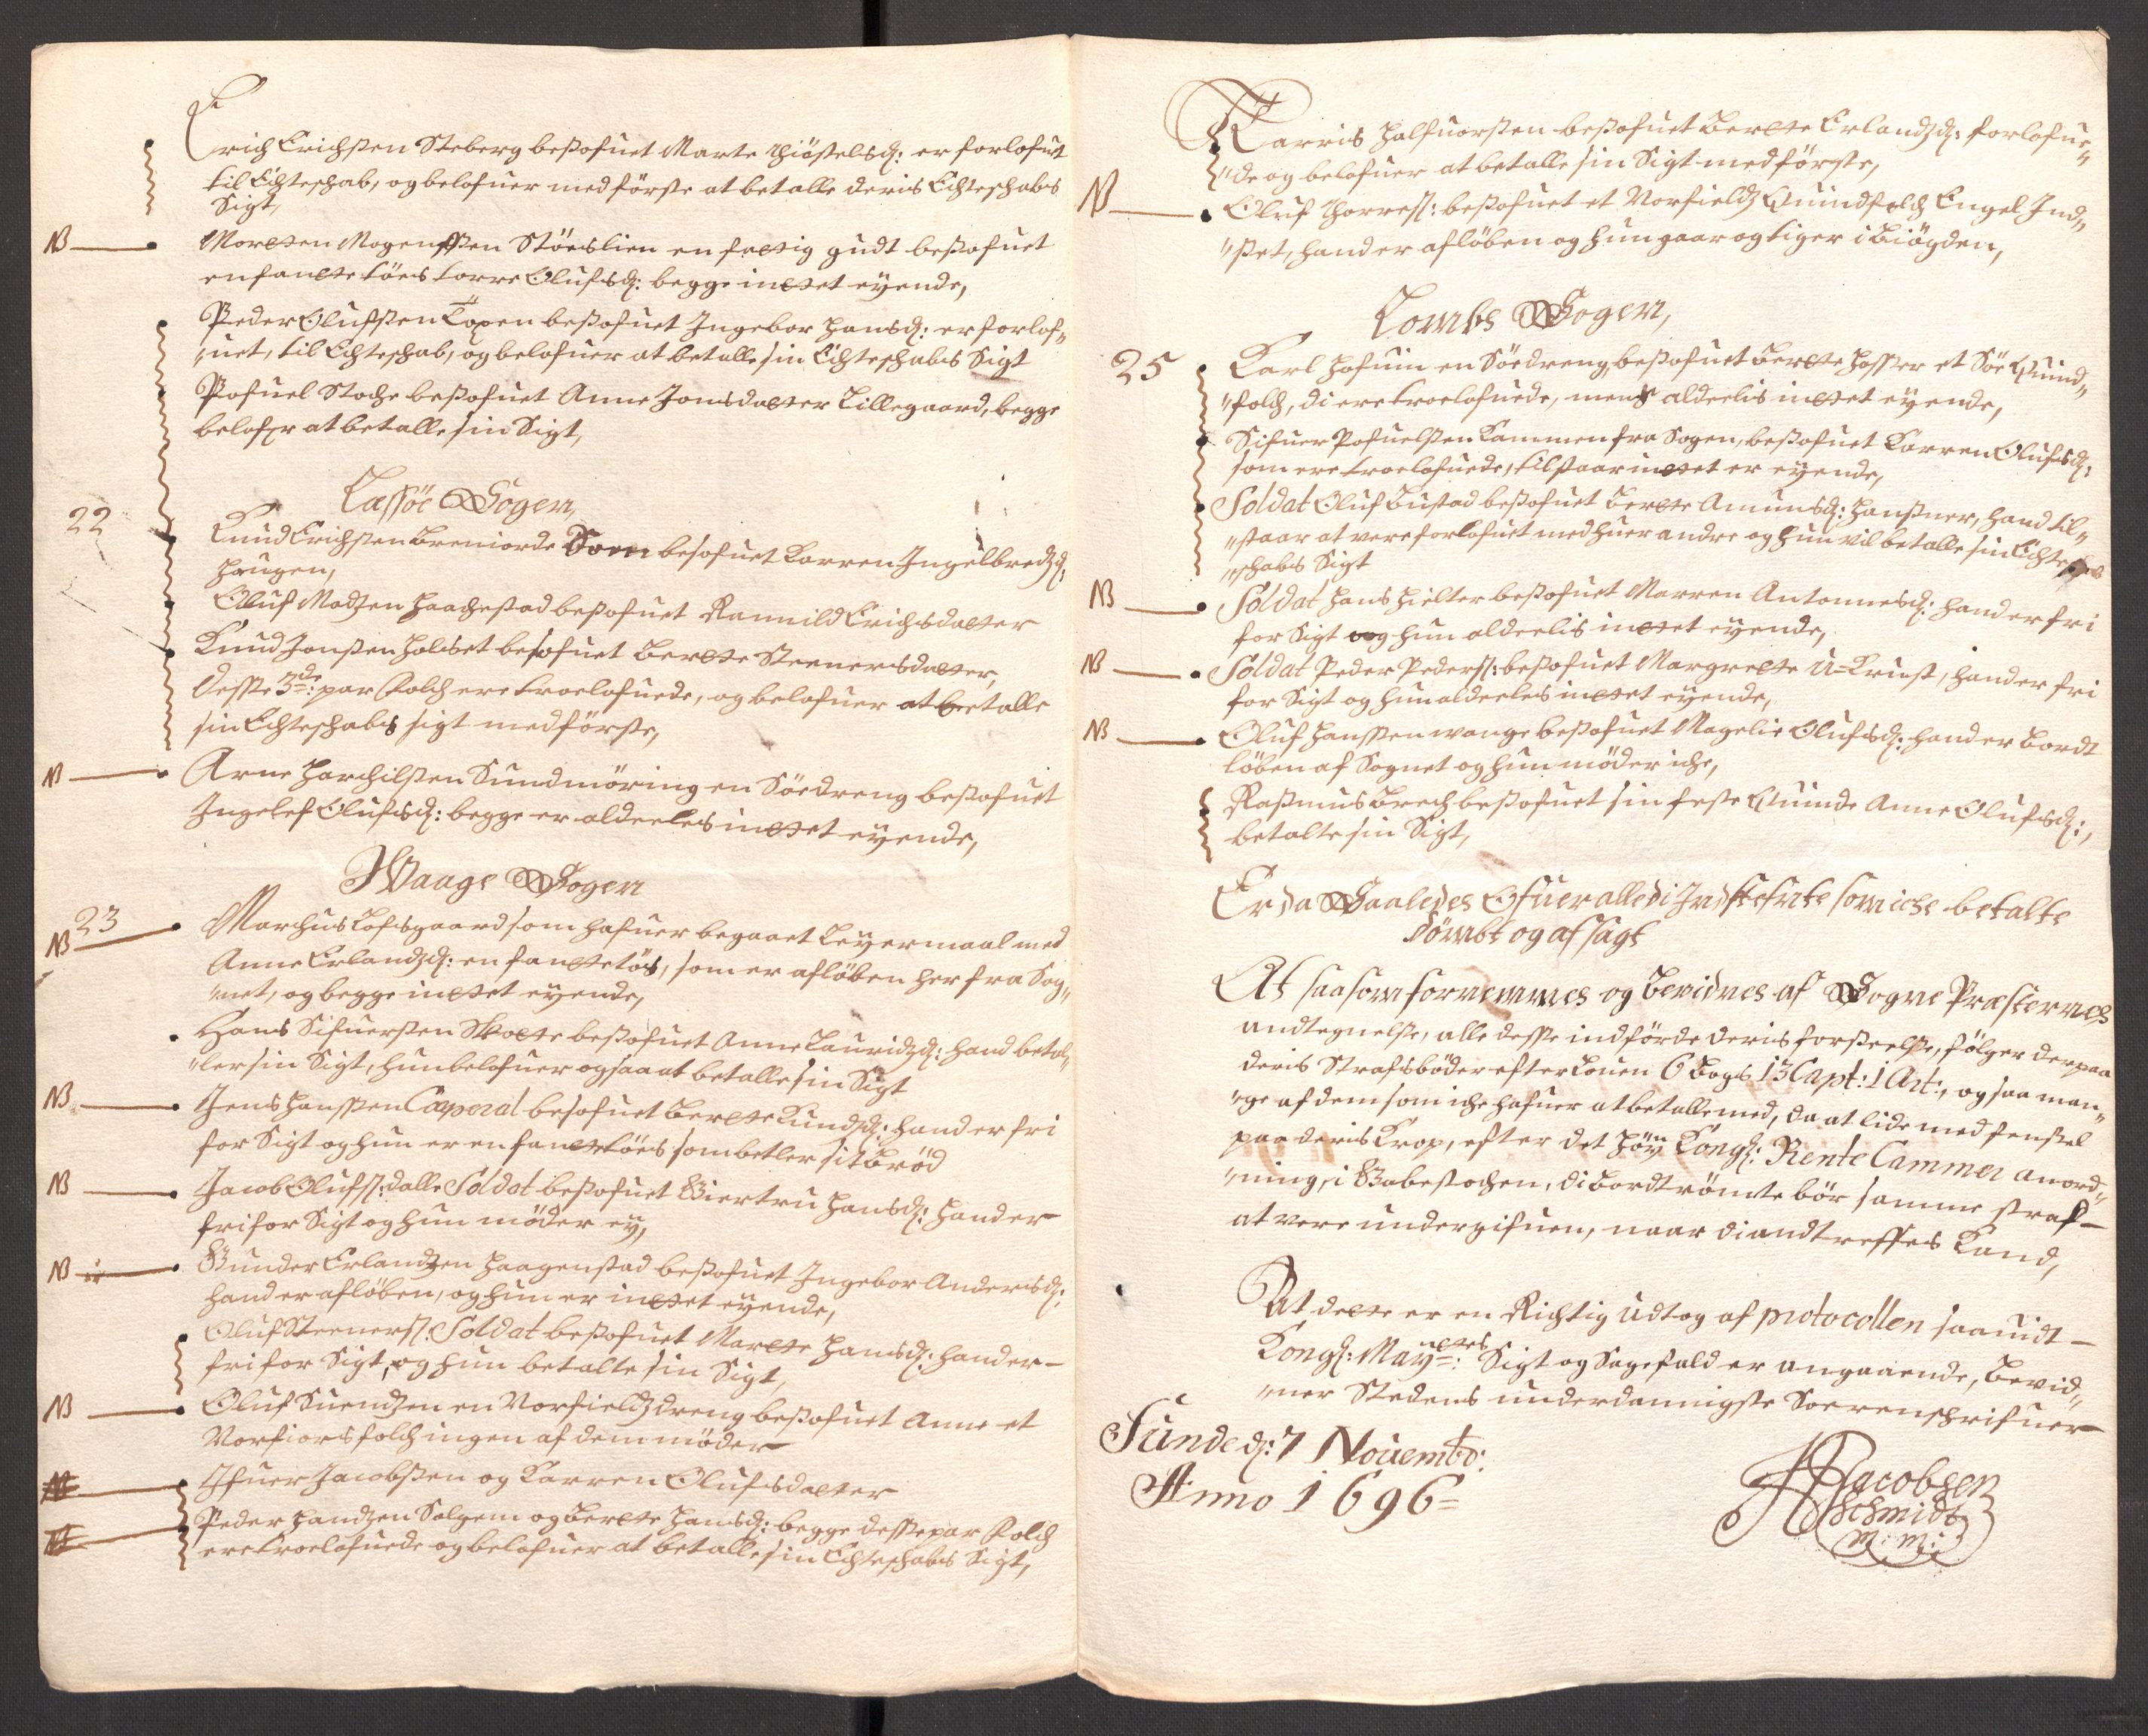 Erich Erichsen Steberg besofuet Marte Thiostelsd: er forlofuet
til Echteschab, og belofuer med förste at betalle deris Echteschabs
Sigt,
NB Morten Mogensen Stöeslien en fattig gudt besofuet
en fantetöes Torre Olufsd: begge intet eyende,
Peder Olufsen besofuet Ingebor Hansd: er forlof„
„uet, til Echteschab, og belofuer at betalle sin Echteschabs Sigt
Pofuel Stoche besofuet Anne Jonsdatter Lillegaard, begge
belofer at betalle sin Sigt,
Lessöe Sogen,
22 Knud Erichsen Breniorde Som besofuet Karren Ingelbredzd:
Haugen,
Oluf Madzen Haachestad besofuet Rannild Erichsdatter
Knud Jonsen Holset besofuet Berette Steenersdatter,
Desse 3de: par Folch ere trolofuede, og belofuer at betalle
sin Echteschabs sigt med förste,
NB Arne Sundmöring en Söedreng besofuet
Ingelef Olufsd: begge er aldeeles intet eyende,
Waage Sogen
23
NB Marchus Lofsgaard som hafuer begaaet Leyermaal med
Anne Erlandzd: en fantetös, som er aflöben her fra Sog„
„net, og begge intet eyende,
Hans Sifuersen Skotte besofuet Anne Lauridzd: hand betal„
„ler sin Sigt, hun belofuer ogsaa at betalle sin Sigt
NB Jens Hanssen Caperal besofuet Berette Knudzd: hand er fri
for Sigt og hun er en fantetöes som betler sit Bröd
NB Jacob Olufs: Dalle Soldat besofuet Giertru Hansd: Hand er
fri for Sigt og hun möder ey,
NB Gunder Erlandzen Haagenstad besofuet Ingebor Andersd:
hand er aflöben, og hun er intet eyende,
Oluf Steeners: Soldat besofuet Marete Hansd: hand er
fri for Sigt, og hun betalte sin Sigt,
NB Oluf Suendzen en Norfieldz dreng besofuet Anne et
Norfiors folch ingen af dem möder
NB Ifuer Jacobsen og Karren Olufsdatter
NB Peder Handzen Solgem og Berete Hansd: begge desse par Folch
ere trolofuede og belofuer at betalle sin Echteschabs Sigt,
Karris Halfuorsen besofuet Berette Erlandzd: forlofue„
„de og belofuer at betalle sin Sigt med förste,
NB Oluf Thorres: besofuet et Norfieldz Quindfolch Engel Ind„
„set, hand er aflöben og hun gaar og tiger i Biögden,
Lombs Sogen,
25 Karl Hofuin en Söedreng, besofuet Berette Hosser et Söe Quind„
„folch, di ere trolofuede, mens aldeelis intet eyende,
Sifuer Pofuelsen Kammen fra Sogen, besofuet Karren Olufsd:
som ere trolofuede, tilstaar intet er eyende,
Soldat Oluf Bustad besofuet Berette Amunsd: Hansner, hand til„
„staar at vere forlofuet med huer andre og hun vil betalle sin Echte
„schabs Sigt
NB Soldat Hans Hielter besofuet Marren Antonnesd: hand er fri
for Sigt og hun aldeelis intet eyende,
NB Soldat Peder Peders: besofuet Margrette U=Kruust, hand er fri
for Sigt og hun aldeeles intet eyende,
NB Oluf Hanssen wange besofuet Magelie Olufsd: hand er Bordt
löben af Sognet og hun möder iche,
Rasmus Brech besofuet sin feste Quinde Anne Olufsd:,
betalte sin Sigt,
Er da Saaledes Ofuer alle di Indstefnte som iche betalte
Dömbt og afsagt
At saasom fornemmes og Bevidnes af Sogne Præsternes
andtegnelse, alle desse indförde deris forseelse, fölger derpaa
deris Strafsböder efter Louen 6 Bogs 13 Capt: 1 Art:, og saa man„
„ge af dem som iche hafuer at betalle med, da at lide med fensel
paa deris Krop, efter det Höy Kongl: Rente Cammer anord„
„ning, i Gabestochen, di Bordt römte bör samme straf
at vere undergifuen, naar di andtreffes Kand,
At dette er en Rigtig Udtog af protocollen saauidt
Kongl: Mayttes: Sigt og Sagefald er angaaende, Bevid„
„ner Stedens underdannigste Sorenschrifuer
Sunde d: 7 Novembr:
Anno 1696
Jacobsen
Schmidt
m: m: